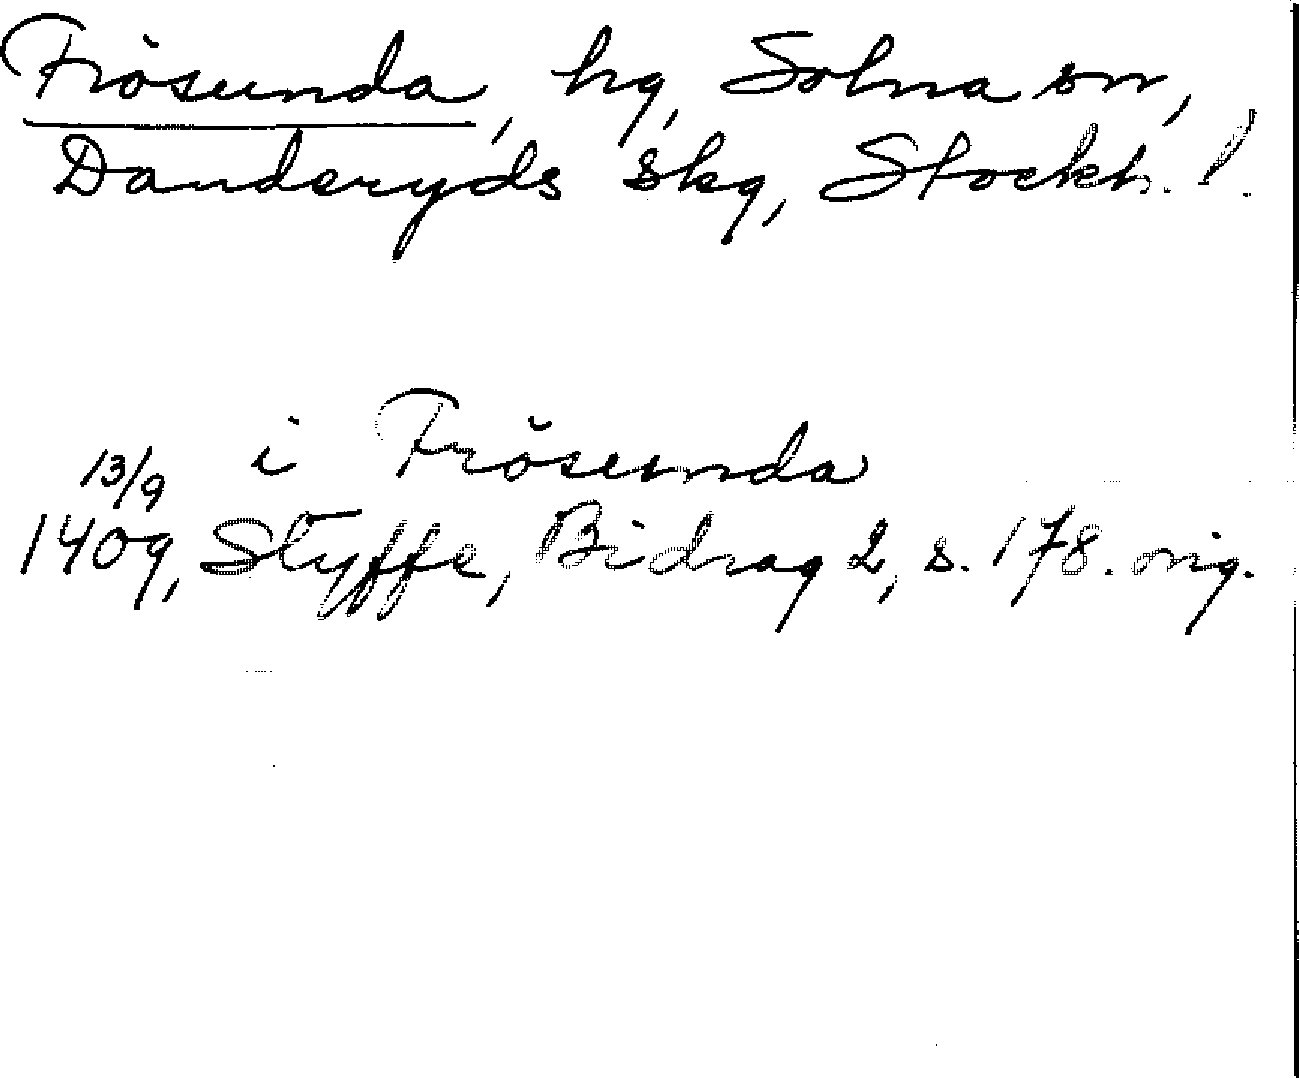 Frösunda, hg, Solna sn,
Danderyds skg, Stockh. l.
i Frösunda
13/9
1409, Styffe, Bidrag 2, s. 178. orig.